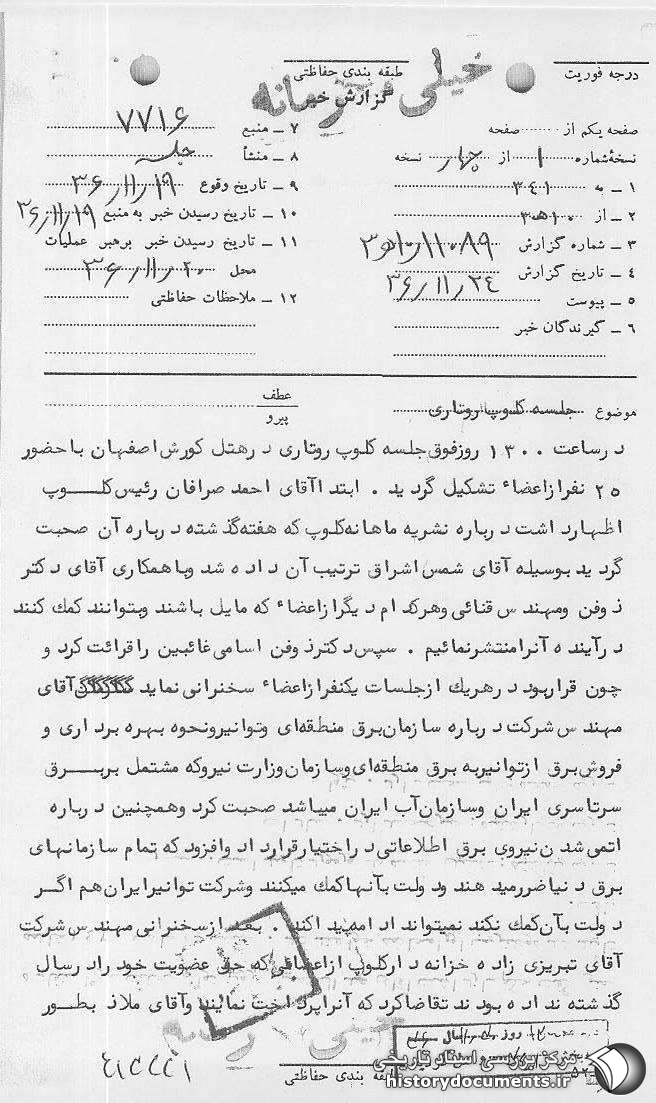 خیلی محرمانه
درجه فوریت
طبقه بندی حفاظتی
گزارش خبر
صفحه یکم از ........ صفحه
نسخهٔ شماره ۱ از چهار نسخه
۱ ـ به ۳۴۱
۲ ـ از ۱۰ه۳
۳ ـ شماره گزارش
۴ ـ تاریخ گزارش ۳۶/۱۱/۲۴
۵ ـ پیوست
۶ ـ گیرندگان خبر
۷ ـ منبع ۷۷۱۶
۸ ـ منشأ جلسه
۹ ـ تاریخ وقوع ۳۶/۱۱/۱۹
۱۰ ـ تاریخ رسیدن خبر به منبع ۳۶/۱۱/۱۹
۱۱ ـ تاریخ رسیدن خبر برهبر عملیات
محل ۳۶/۱۱/۲۰
۱۲ ـ ملاحظات حفاظتی
موضوع جلسه کلوپ روتاری
عطف
پیرو
درساعت ۱۳۰۰ روز فوق جلسه کلوپ روتاری در هتل کورش اصفهان با حضور
۲۵ نفر از اعضاء تشکیل گردید . ابتدا آقای احمد صرافان رئیس کلوپ
اظهارداشت درباره نشریه ماهانه کلوپ که هفته گذشته درباره آن صحبت
گردید بوسیله آقای شمس اشراق ترتیب آن داده شد وباهمکاری آقای دکتر
ذوفن ومهندس قنائی وهرکدام دیگر از اعضاء که مایل باشند وبتوانند کمك کنند
درآینده آنرا منتشر نمائیم . سپس دکتر ذوفن اسامی غائبین را قرائت کرد و
چون قرار بود در هریك از جلسات یکنفر از اعضاء سخنرانی نماید آقای
مهندس شرکت درباره سازمان برق منطقه‌ای وتوانیر ونحوه بهره برداری و
فروش برق از توانیر به برق منطقه‌ای وسازمان وزارت نیرو که مشتمل بر برق
سرتاسری ایران وسازمان آب ایران میباشد صحبت کرد وهمچنین درباره
اتمی شدن نیروی برق اطلاعاتی در اختیار قرار داد وافزود که تمام سازمانهای
برق دنیا ضرر میدهند ودولت بآنها کمك میکنند وشرکت توانیر ایران هم اگر
دولت بآن کمك نکند نمیتواند ادامه پیدا کند . بعد از سخنرانی مهندس شرکت
آقای تبریزی زاده خزانه دار کلوپ از اعضائی که حق عضویت خود را در سال
گذشته نداده بودند تقاضا کرد که آنرا پرداخت نمایند وآقای ملاذ بطور
خیلی محرمانه
طبقه بندی حفاظتی
مرکز بررسی اسناد تاریخی
historydocuments.ir